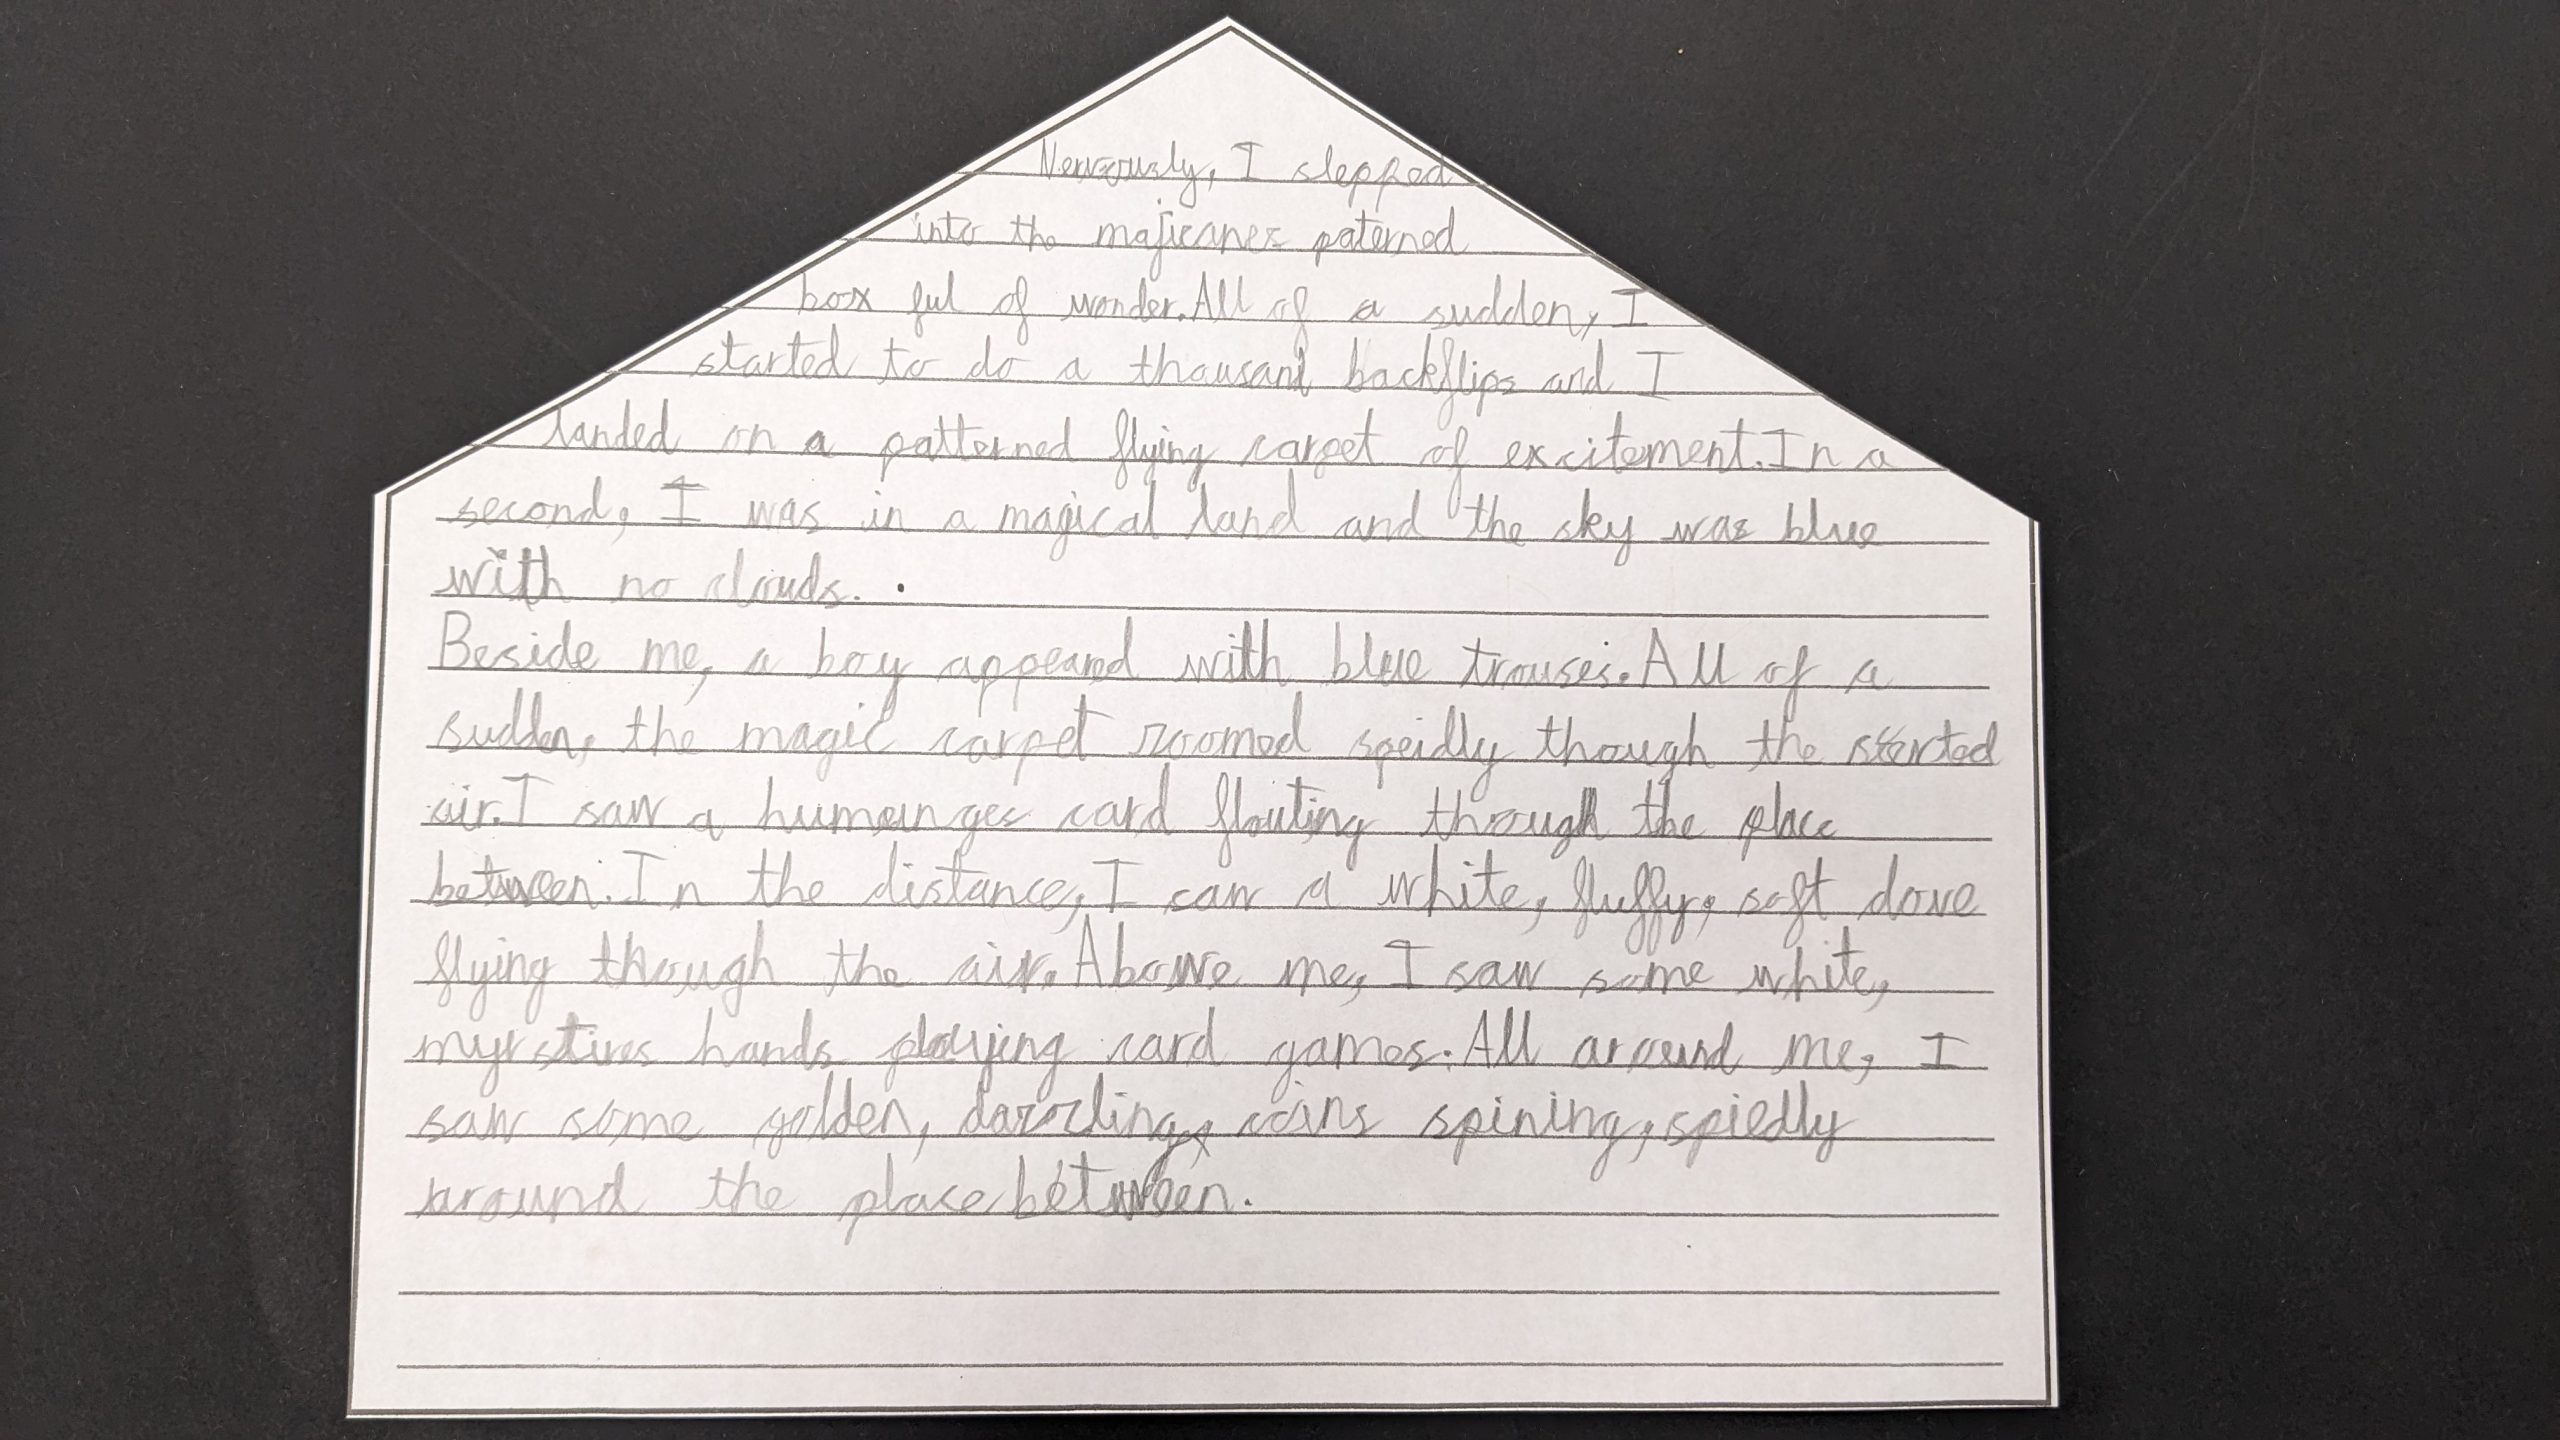 Nervously, I stepped
into the majicanes paterned
box ful of wonder. All of a sudden, I
started to do a thousand backflips and I
landed on a patterned flying carpet of excitement. In a
second, I was in a magical land and the sky was blue
with no clouds.
Beside me, a boy appeared with blue trouses. All of a
sudden, the magic carpet zoomed speidly though the
air. I saw a humeinges card floating through the place
between. In the distance, I saw a white, fluffy, soft dove
flying though the air. Above me, I saw some white,
myrstires hands playing card games. All around me, I
saw some golden, dazzling, coins spining, spiedly
around the place between.